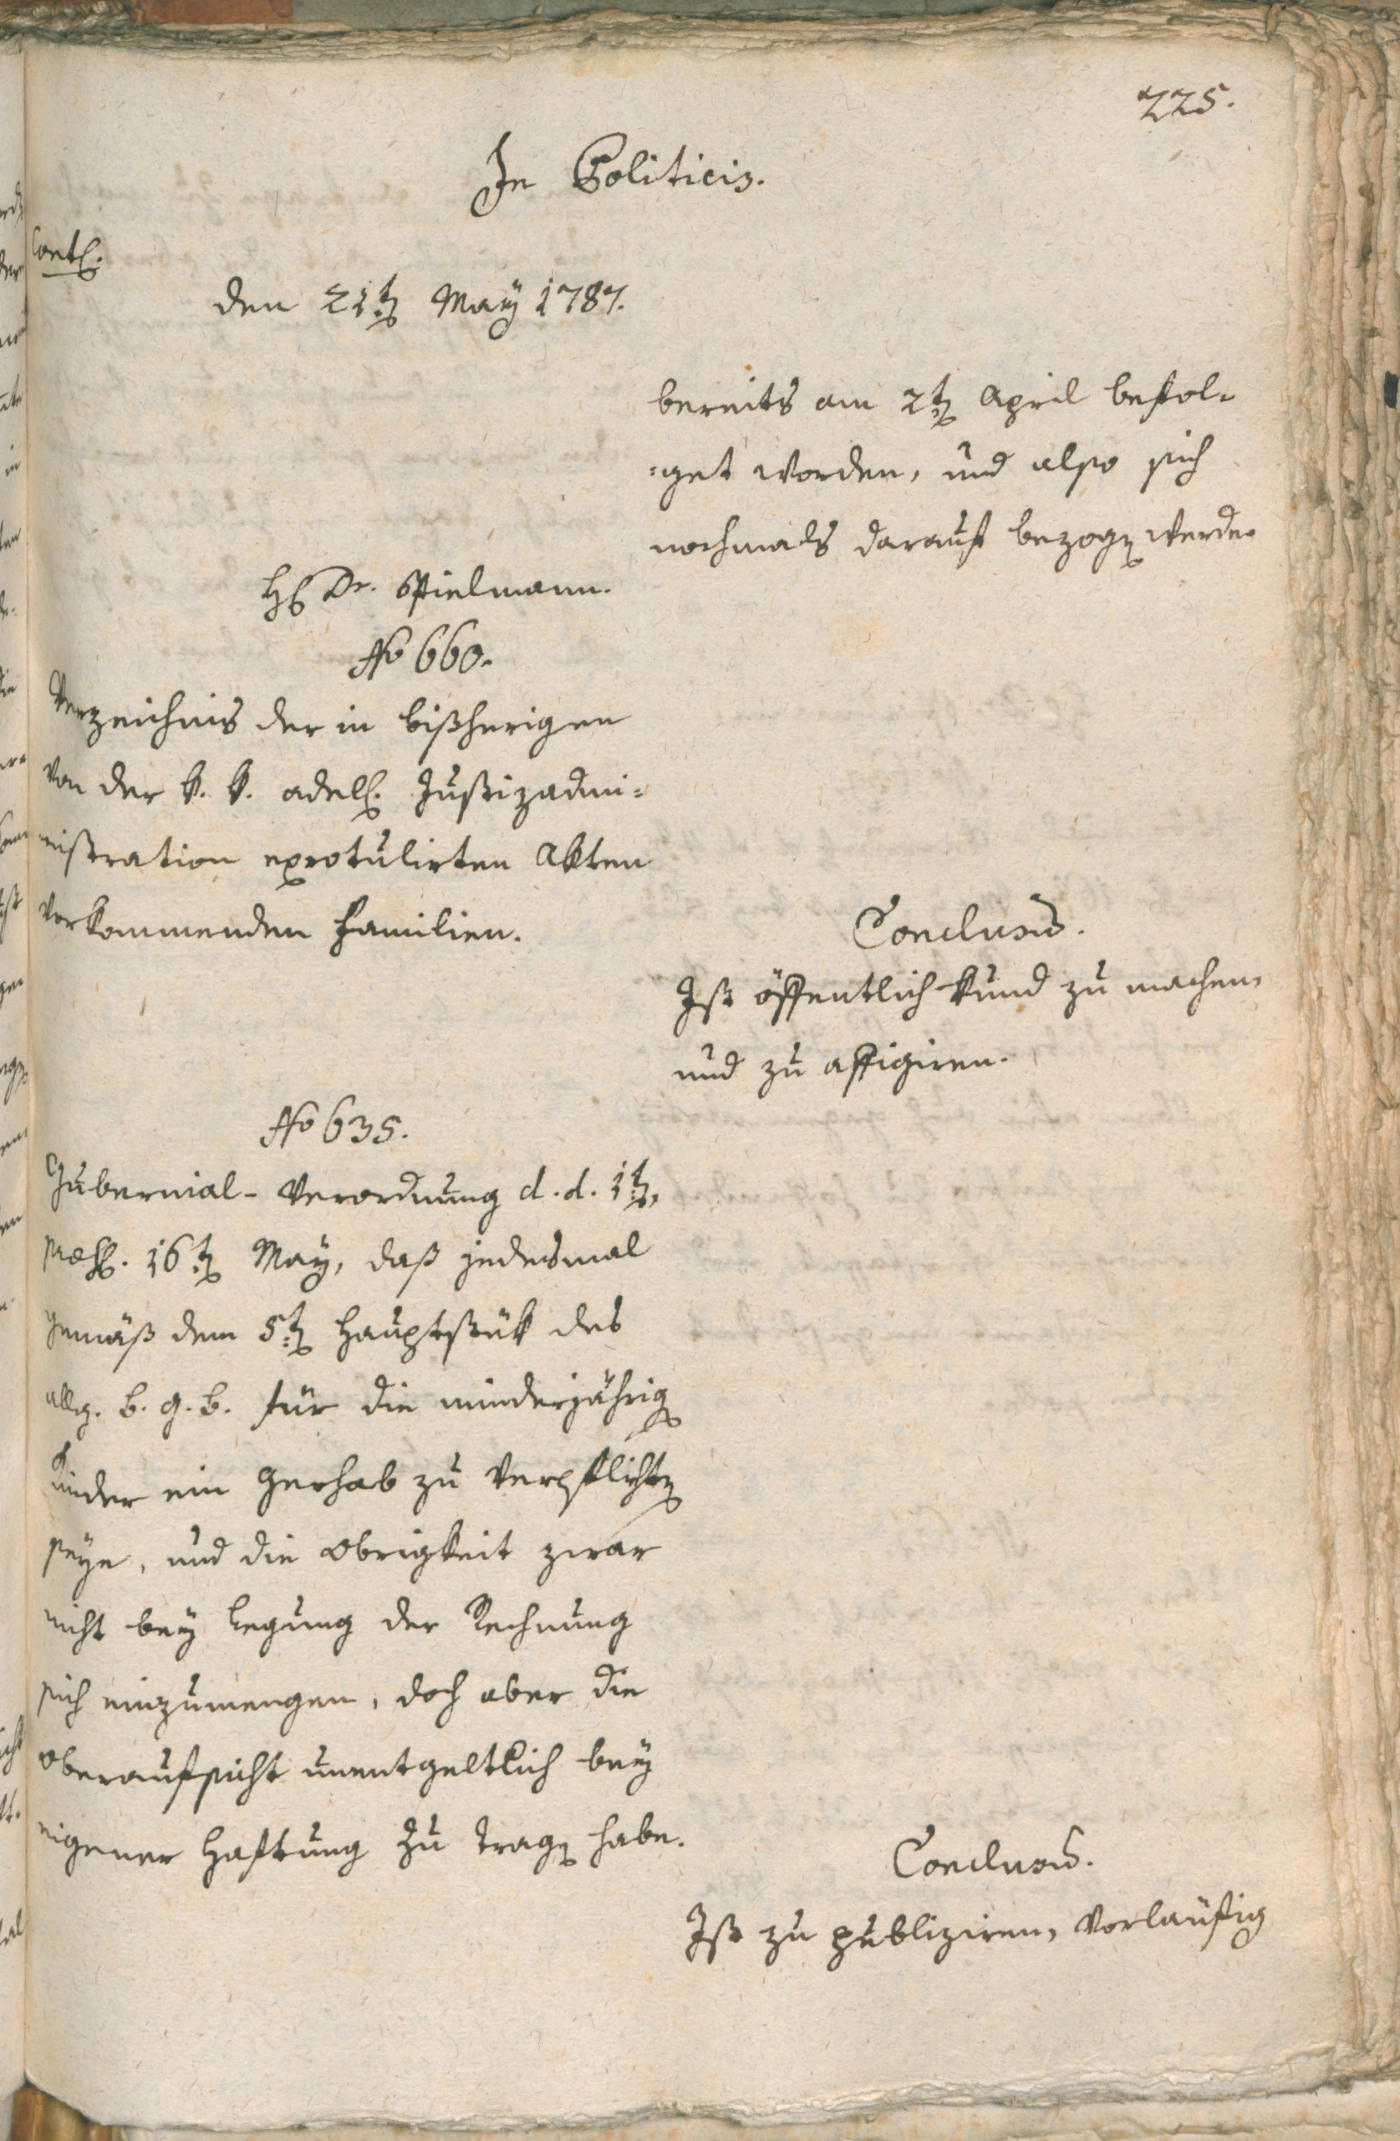 225.
In Politicis.
Cont.
den 21t. May 1787.
bereits am 2t. April befol-
-get worden, und also sich
nochmals darauf bezogen werde.
H. Dr. Spielmann.
No 660.
Verzeichnis der in bißherigen
von der k. k. adel. Justizadmi-
nistration exrotulirten Akten
vorkommenden Familien.
Conclusum.
Ist öffentlich kund zu machen,
und zu affigiren.
No 635.
Gubernial-Verordnung d. d. 1t.,
præs. 16t. May, daß jedesmal
gemäß dem 5t. Hauptstük des
allg. b. G. B. für die minderjährigen
Kinder ein Gerhab zu verpflichten
seye, und die Obrigkeit zwar
nicht bey Legung der Rechnung
sich einzumengen, doch aber die
Oberaufsicht unentgeltlich bey
eigener Haftung zu tragen habe.
Conclusum.
Ist zu publiziren, vorläufig